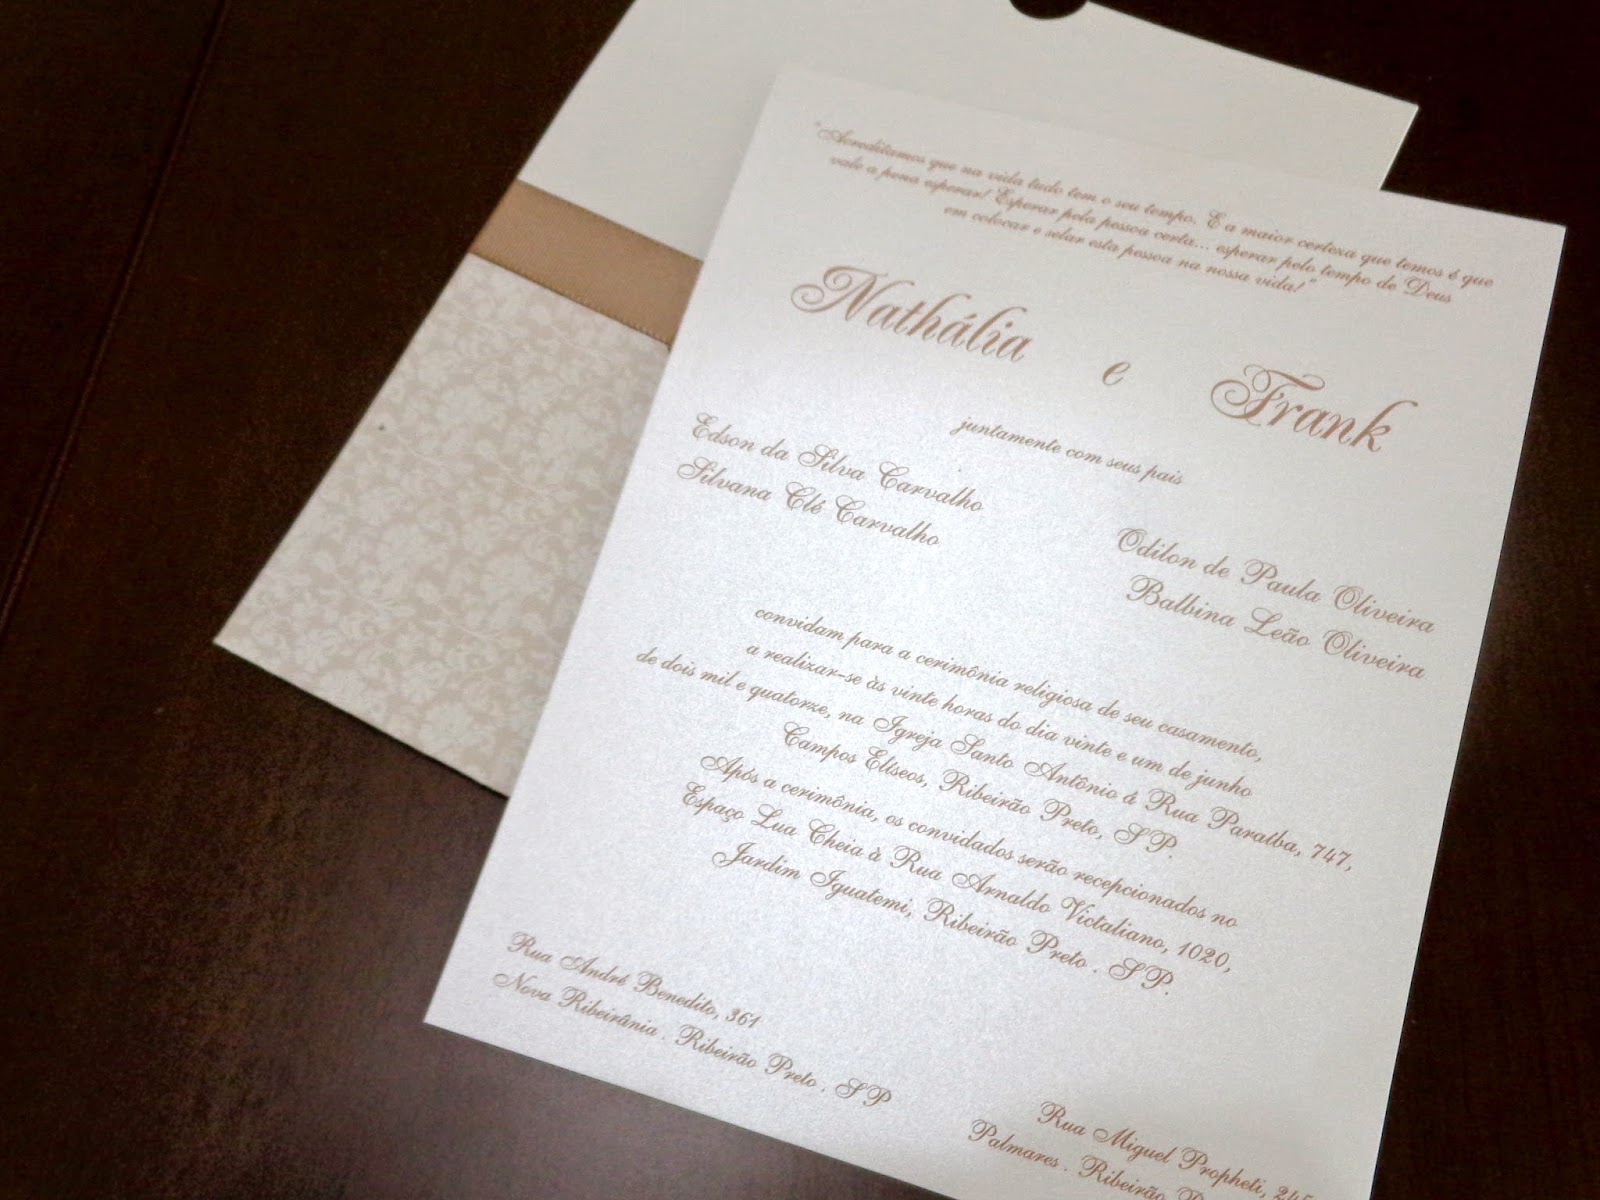 "Acreditamos que na vida tudo tem o seu tempo. E a maior certeza que temos é que
vale a pena esperar! Esperar pela pessoa certa... esperar pelo tempo de Deus
em colocar e selar esta pessoa na nossa vida!"
Nathália e Frank
juntamente com seus pais
Edson da Silva Carvalho
Silvana Clé Carvalho
Odilon de Paula Oliveira
Balbina Leão Oliveira
convidam para a cerimônia religiosa de seu casamento,
a realizar-se às vinte horas do dia vinte e um de junho
de dois mil e quatorze, na Igreja Santo Antônio á Rua Paraíba, 747,
Campos Elíseos, Ribeirão Preto, SP.
Após a cerimônia, os convidados serão recepcionados no
Espaço Lua Cheia à Rua Arnaldo Victaliano, 1020,
Jardim Iguatemi, Ribeirão Preto . SP.
Rua André Benedito, 361
Nova Ribeirânia . Ribeirão Preto . SP
Rua Miguel Propheti, 245
Palmares . Ribeirão